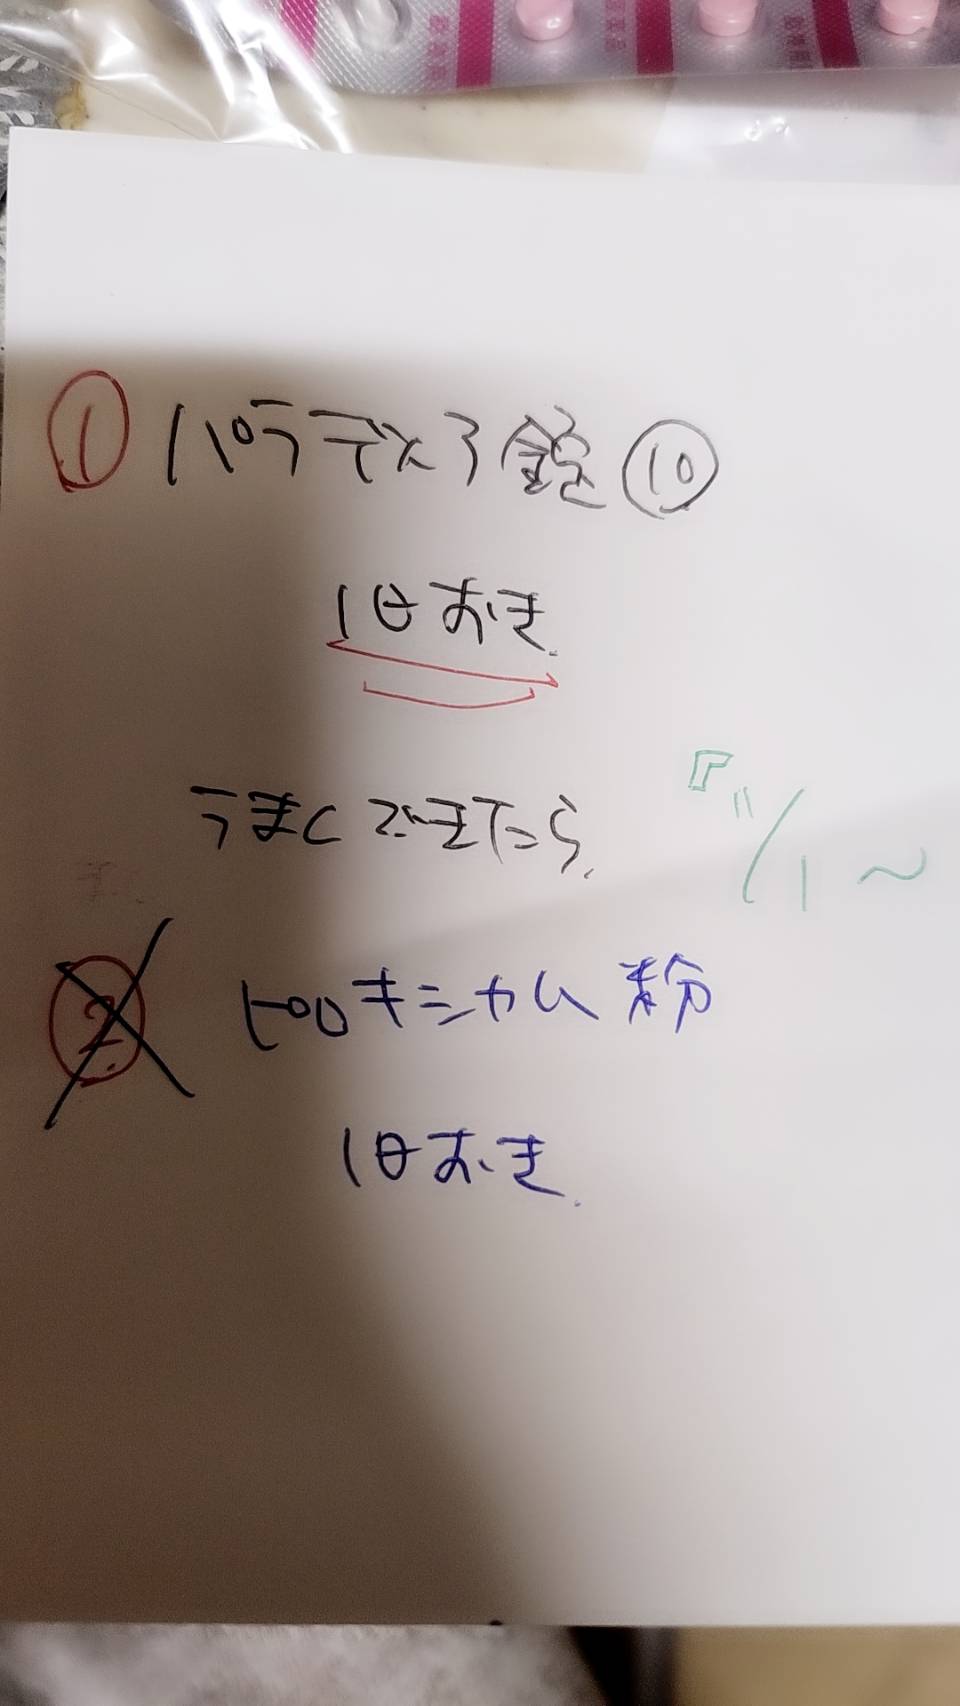 ① パラディア錠 ⑩
1日おき.
うまくできたら. 『11/1〜
② ピロキシカム 粉
1日おき.